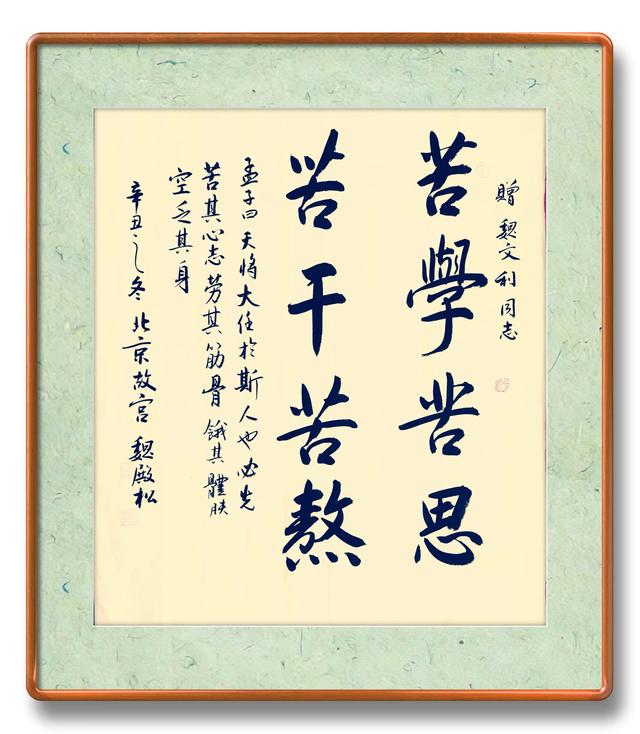 贈魏文利同志
苦學苦思
苦干苦熬
孟子曰天將大任於斯人也必先
苦其心志勞其筋骨餓其體膚
空乏其身
辛丑之冬北京故宮魏殿松